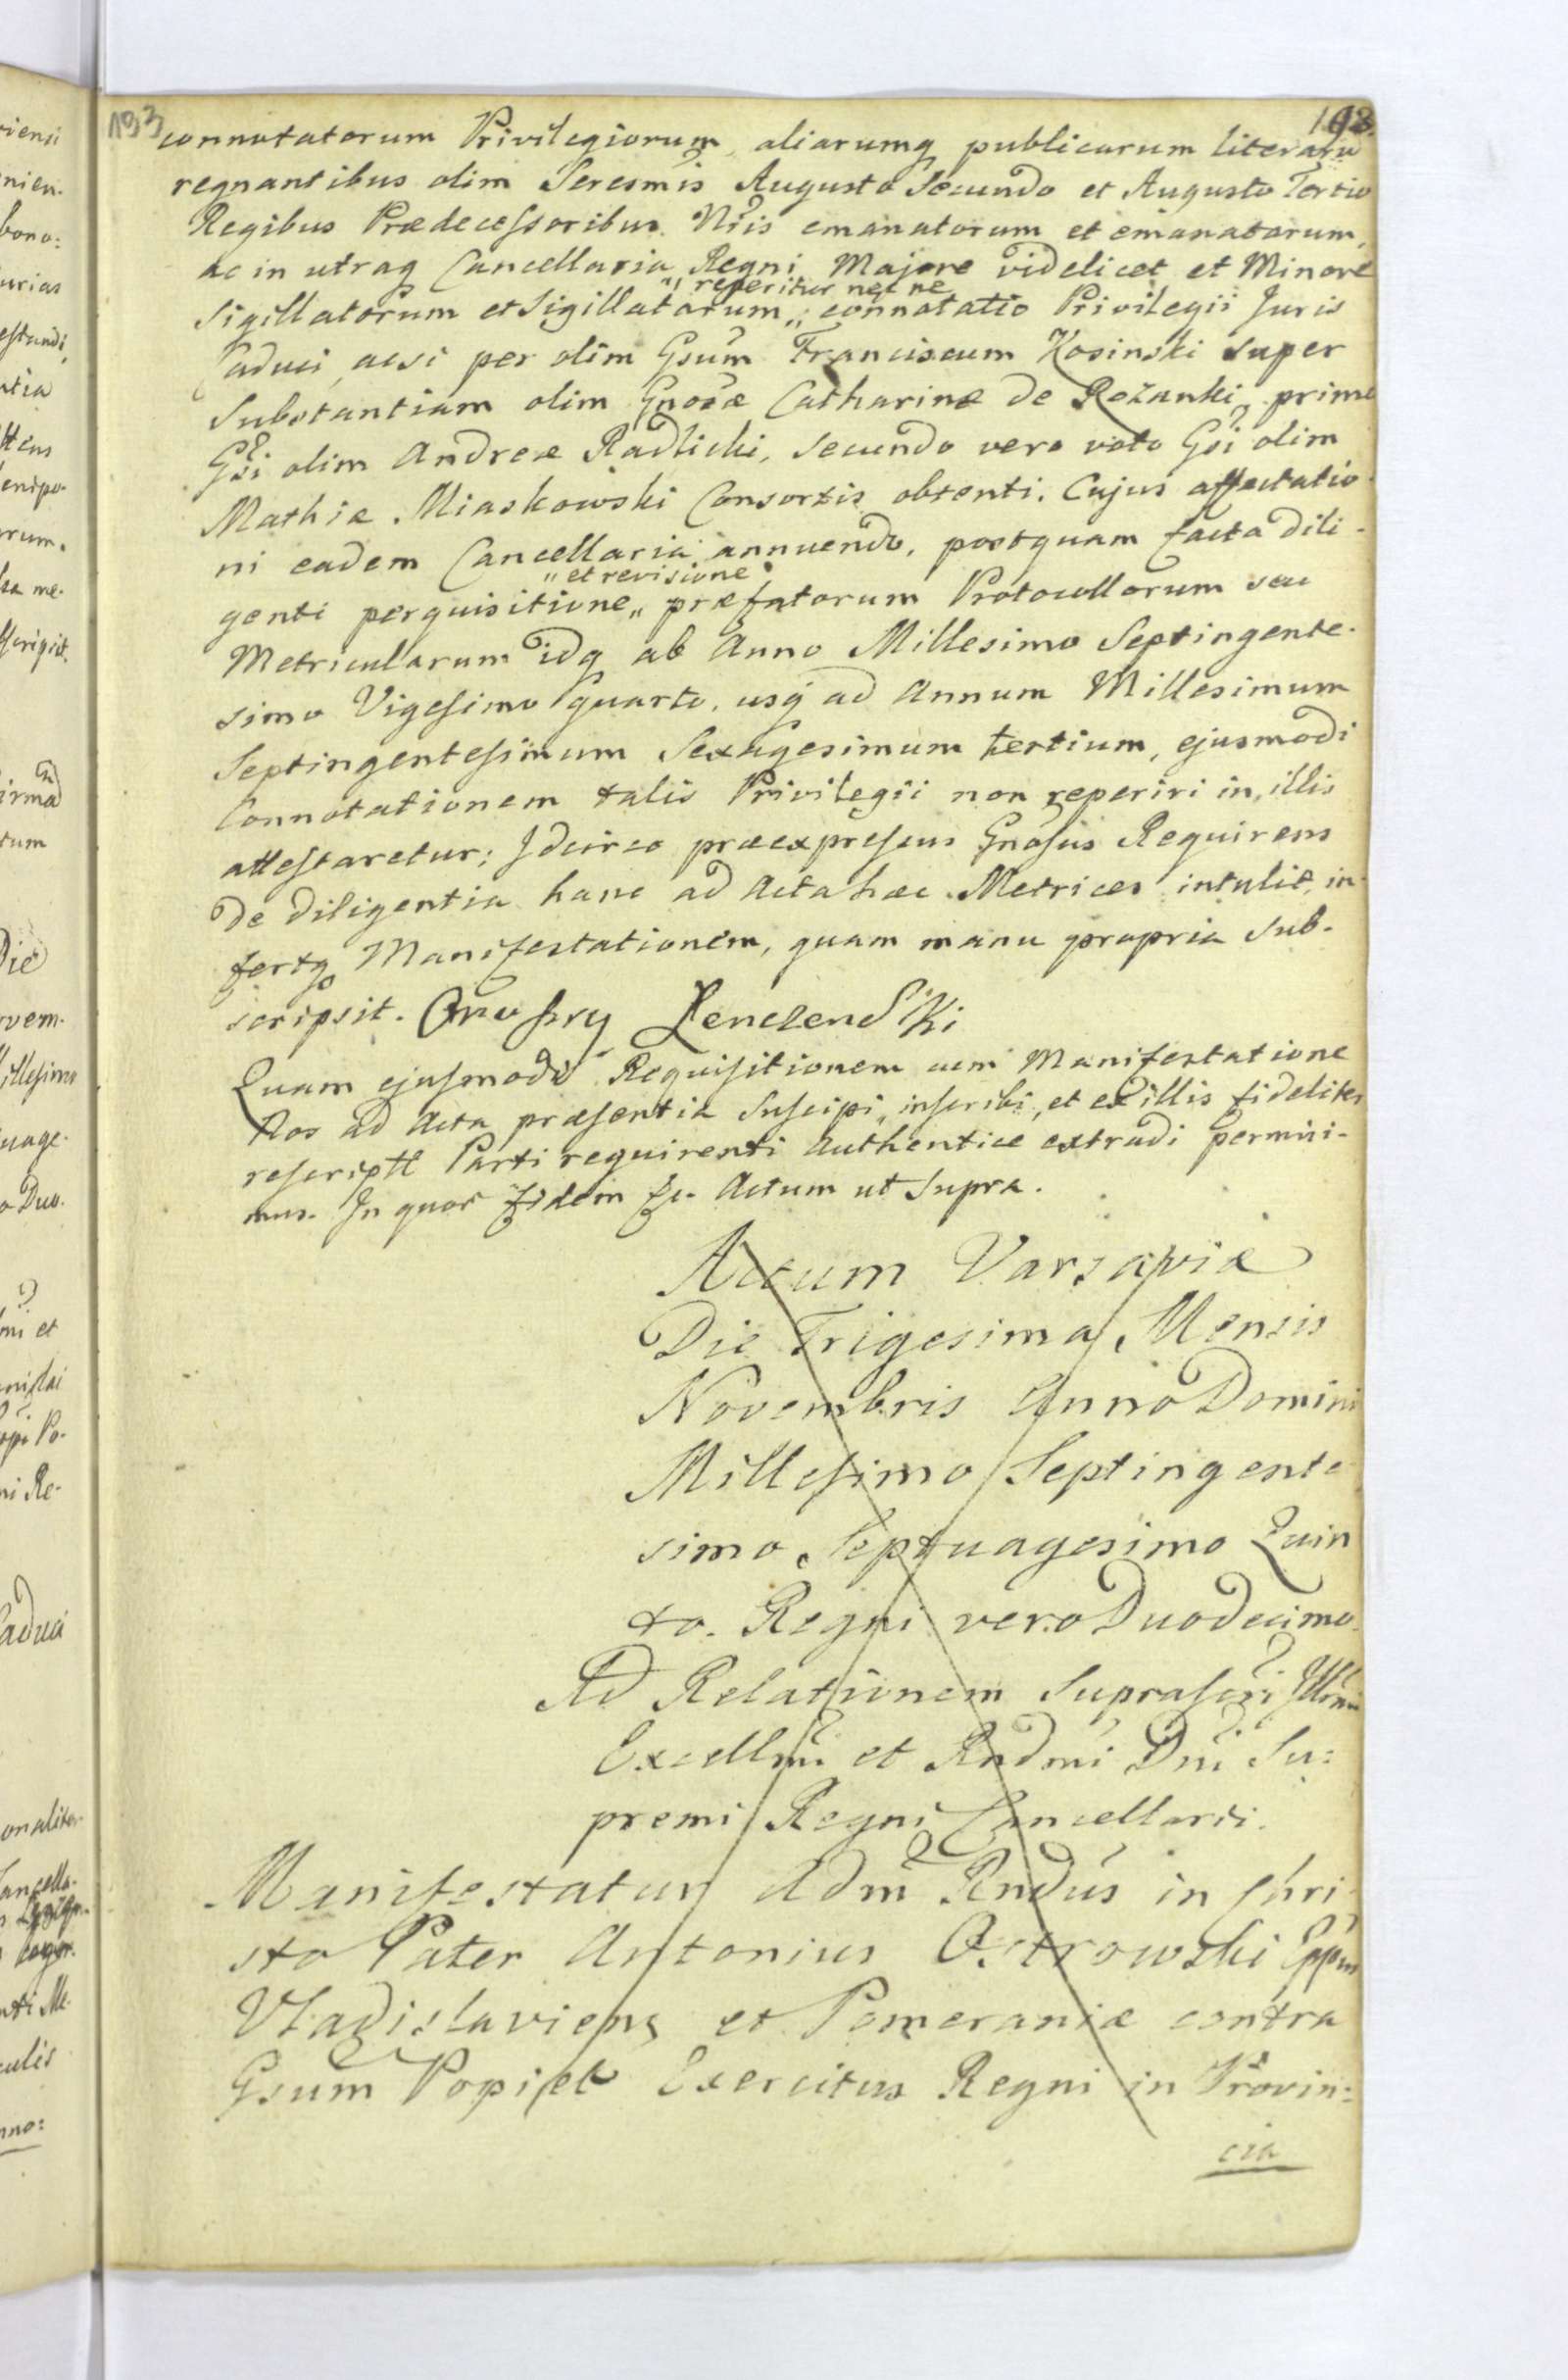 193 193.
connotatorum Privilegiorum aliarumq publicarum literaru
regnantibus olim Seresmis Augusto Secundo et Augusto Tertio
Regibus Prædecessoribus Nris emanatorum et emanatarum,
ac in utraq Cancellaria Regni Majore videlicet et Minore
"reperitur nec ne
Sigillatorum et Sigillatarum,, connotatio Privilegii Juris
Caduci, acsi per olim Gsum Franciscum Kosinski super
Substantiam olim Gnosæ Catharinæ de Rożanki, primo
Gsi olim Andreæ Radlicki, secundo vero voto Gsi olim
Mathiæ Miaskowski Consortis obtenti. Cujus affectatio-
ni eadem Cancellaria annuendo, postquam facta dili-
"et revisione"
genti perquisitione,, præfatorum Protocollorum seu
Metricularum idq ab Anno Millesimo Septingente-
simo Vigesimo quarto, usq ad Annum Millesimum
Septingentesimum Sexagesimum tertium, ejusmodi
Connotationem talis Privilegii non reperiri in illis
attestaretur; Idcirco præexpressus Gnosus Requirens
de diligentia hanc ad Acta hæc Metrices intulit, in-
fertq Manifestationem, quam manu propria sub-
scripsit. Onufry
Quam ejusmodi Requisitionem cum Manifestatione
Nos ad Acta præsentia Suscipi, inscribi, et ex illis fideliter
rescriptt Parti requirenti Authentice extradi permisi-
mus. In quor fidem &c. Actum ut Supra.
Actum Varsaviæ
Die Trigesima Mensis
Novembris Anno Domini
Millesimo Septingente
simo Septuagesimo Quin
to. Regni vero Duodecimo.
Ad Relationem Suprascri Illmi
Excellmi et Rndmi Dni Su:
premi Regni Cancellarii.
Manifestatur Adm Rndus in Chri
sto Pater Antonius Ostrowski Eppus
Vladislaviens et Pomeraniæ contra
Gsum Popiel Exercitus Regni in Provin:
cia